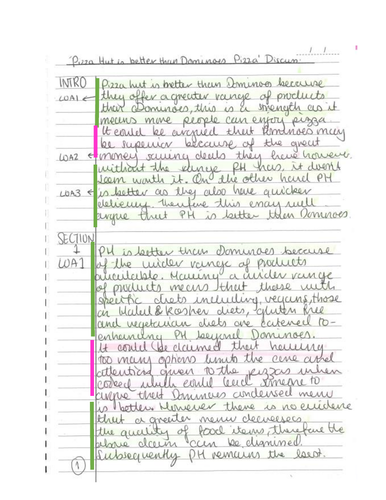 'Pizza Hut is better than Dominoes Pizza' Discuss.
INTRO Pizza hut is better than Dominoes because
LOA1 they offer a greater range of products
than Dominoes, this is a strength as it
means more people can enjoy pizza
It could be argued that Dominoes may
be superior because of the great
LOA2 money saving deals they have however
without the range PH has, it doesn't
seem worth it. On the other hand PH
LOA3 is better as they also have quicker
delivery. Therefore this essay will
argue that PH is better than Dominoes.
SECTION PH is better than Dominoes because
LOA1 of the wider range of products
available. Having a wider range
of products means that those with
specific diets including vegans, those
on Halal & Kosher diets, gluten free
and vegetarian diets are catered to-
enhancing PH beyond Dominoes.
It could be claimed that having
too many options limits the care and
attention given to the pizzas when
cooked which could lead someone to
argue that Dominoes condensed menu
is better. However there is no evidence
that a greater menu decreases
the quality of food items, therefore the
above claim can be dismissed.
Subsequently PH remains the best.
1